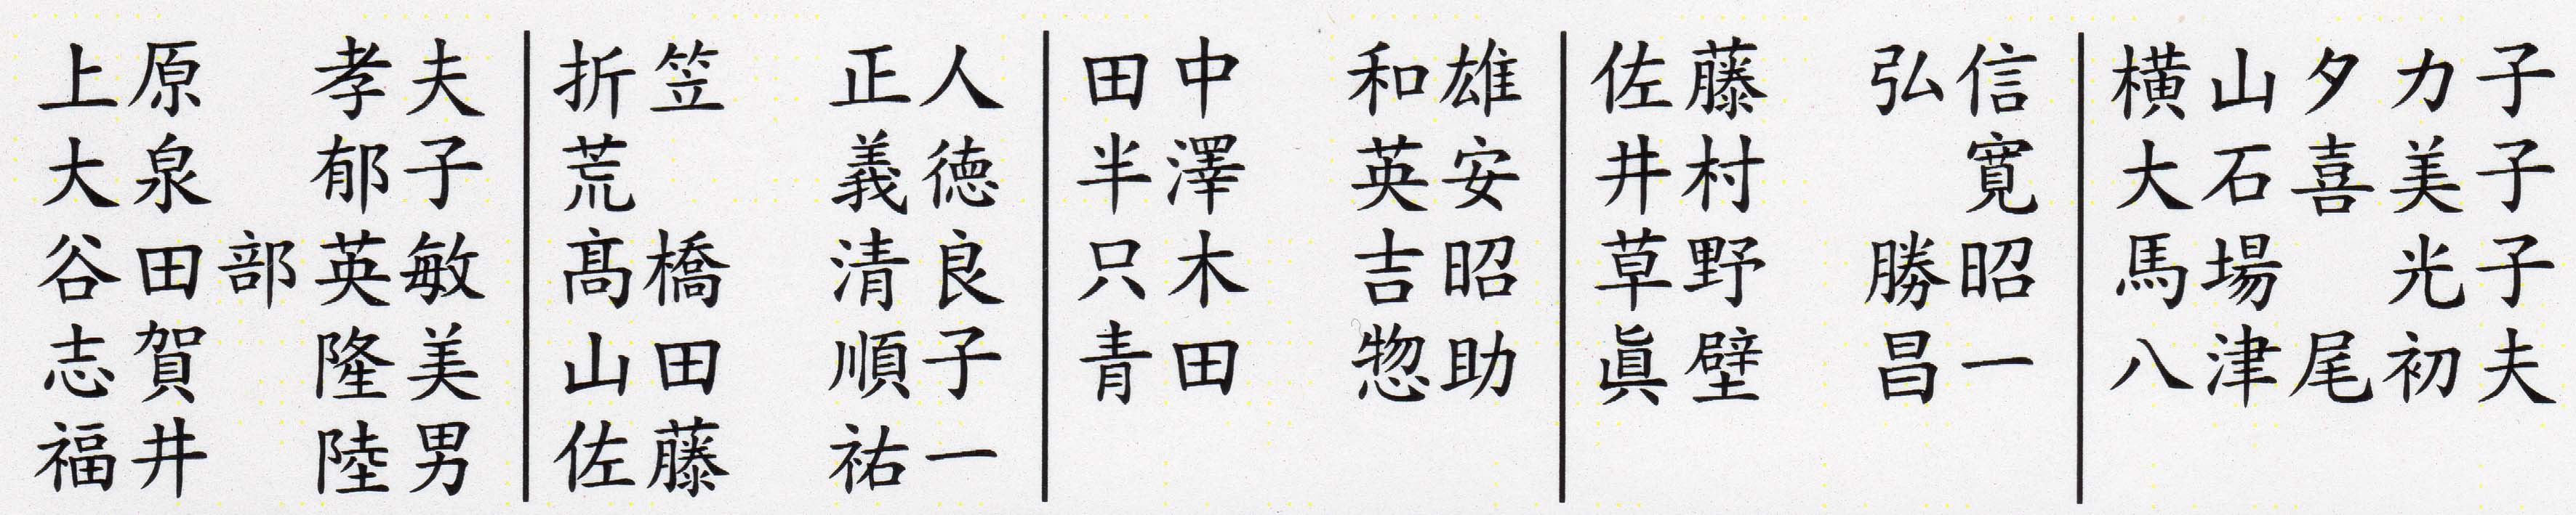 上原　孝夫
大泉　郁子
谷田部英敏
志賀　隆美
福井　陸男
折笠　正人
荒　義徳
髙橋　清良
山田　順子
佐藤　祐一
田中　和雄
半澤　英安
只木　吉昭
青田　惣助
佐藤　弘信
井村　寛
草野　勝昭
眞壁　昌一
横山タカ子
大石喜美子
馬場　光子
八津尾初夫